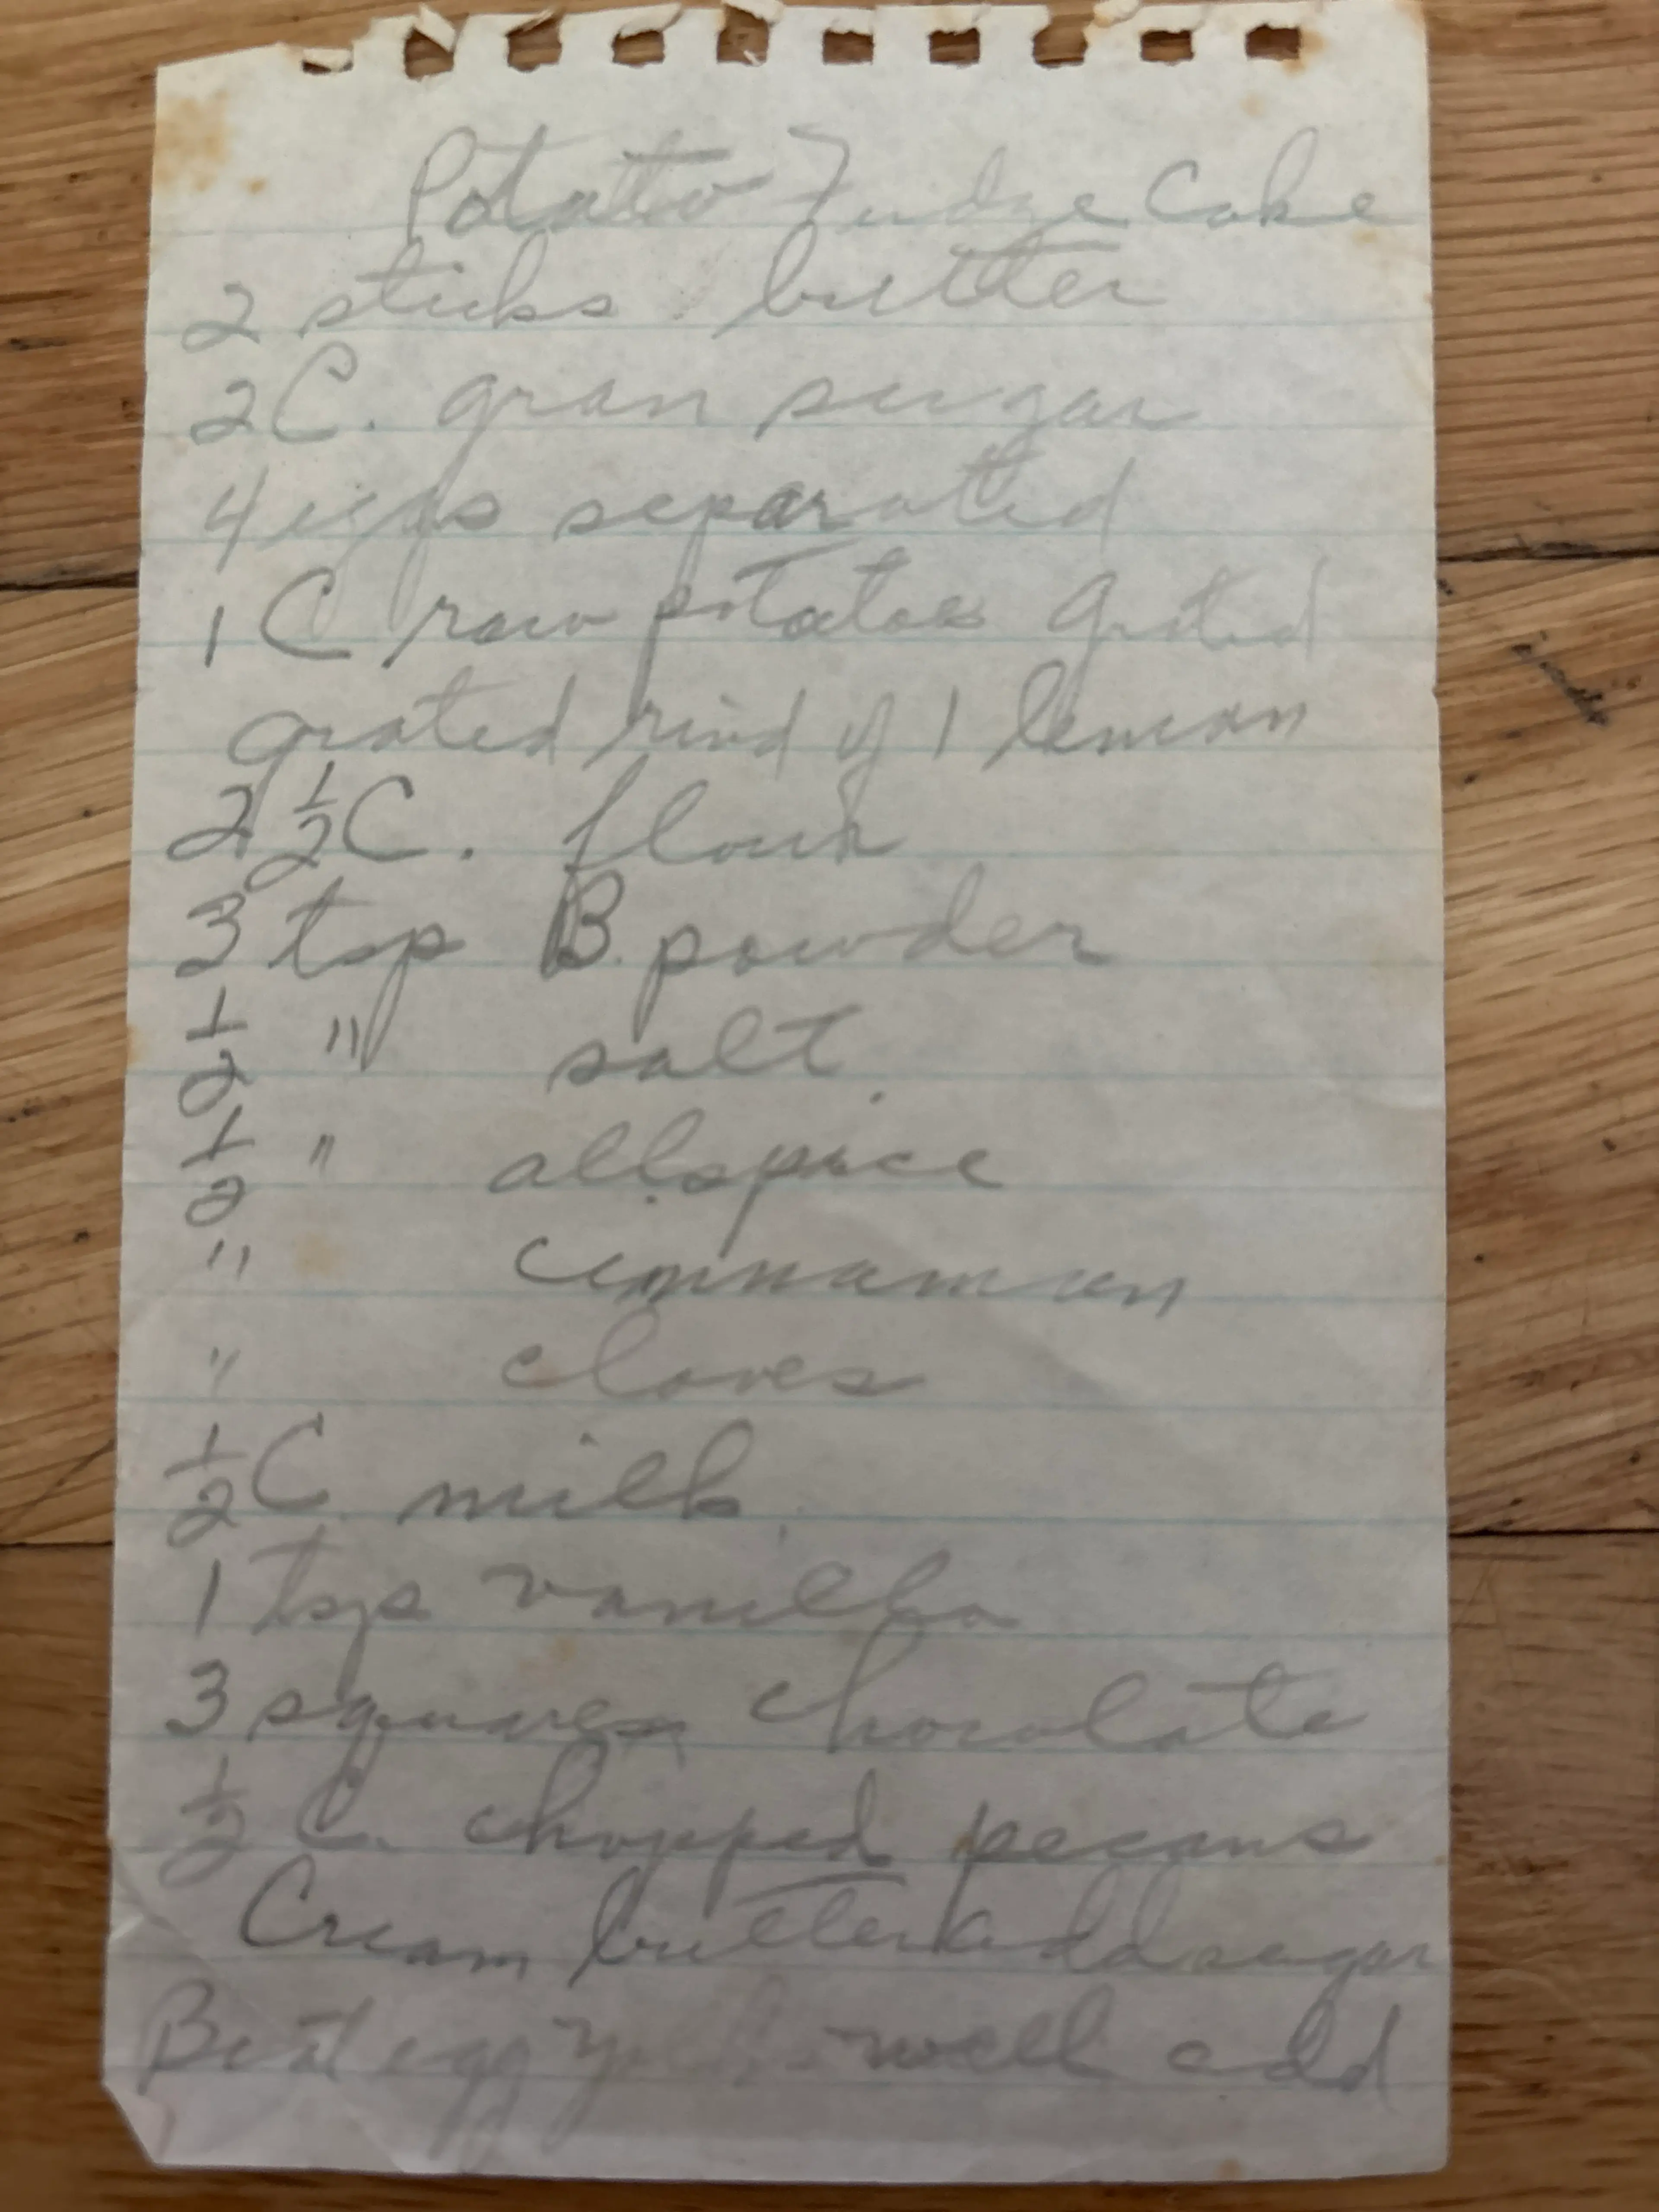 Potato Fudge Cake
2 sticks butter
2 C. gran sugar
4 eggs separated
1 C raw potatoes grated
grated rind of 1 lemon
2 1/2 C. flour
3 tsp B. powder
1/2 " salt.
1/2 " allspice
" cinnamon
" cloves
1/2 C. milk.
1 tsp vanilla
3 squares chocolate
1/2 C. chopped pecans
Cream butter add sugar
Beat egg well add